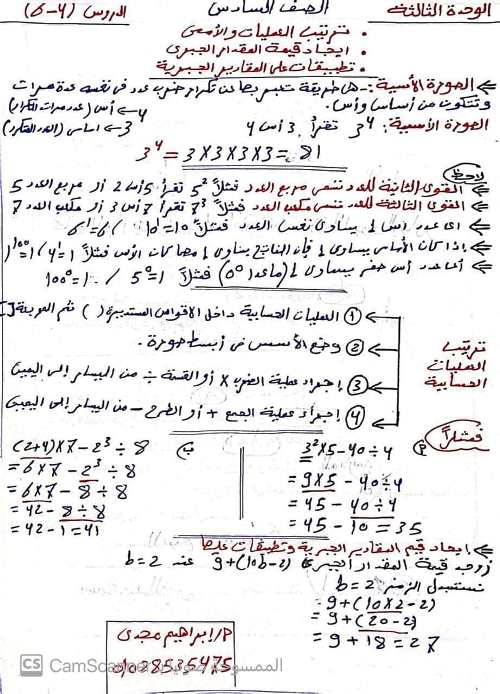 الوحدة الثالثة الصف السادس الدروس (4-6)
• ترتيب العمليات والأسس
• إيجاد قيمة المقدار الجبرى
• تطبيقات على المقادير الجبرية
الصورة الأسية :- هى طريقة تعبر بها عن تكرار ضرب عدد فى نفسه عدة مرات
وتتكون من أساس وأس.
4 ← أس (عدد مرات التكرار)
الصورة الأسية: 3⁴ تقرأ 3 أس 4
3 ← أساس (العدد المتكرر)
3⁴ = 3×3×3×3 = 81
لاحظ
القوى الثانية للعدد تسمى مربع العدد فمثلاً 5² تقرأ 5 أس 2 أو مربع العدد 5
القوى الثالثة للعدد تسمى مكعب العدد فمثلاً 7³ تقرأ 7 أس 3 أو مكعب العدد 7
أى عدد أس 1 يساوى نفس العدد فمثلاً 10¹=10 / 6¹=6
إذا كان الأساس يساوى 1 فإن الناتج يساوى 1 مهما كان الأس فمثلاً 1⁴=1 / 1¹⁰⁰=1
أى عدد أس صفر يساوى 1 (ماعدا 0⁰) فمثلاً 5⁰=1 / 100⁰=1
ترتيب العمليات الحسابية
① العمليات الحسابية داخل الأقواس المستديرة ( ) ثم المربعة [ ]
② وضع الأسس فى أبسط صورة.
③ إجراء عملية الضرب × أو القسمة ÷ من اليسار إلى اليمين
④ إجراء عملية الجمع + أو الطرح - من اليسار إلى اليمين
فمثلاً
أ
3²×5-40÷4
= 9×5 - 40÷4
= 45 - 40÷4
= 45 - 10 = 35
ب
(2+4)×7-2³÷8
= 6×7 - 2³÷8
= 6×7 - 8÷8
= 42 - 8÷8
= 42-1=41
إيجاد قيم المقادير الجبرية وتطبيقات عليها
أوجد قيمة المقدار الجبرى 9+(10b-2) عند b=2
نستبدل الرمز b=2
= 9+(10×2-2)
= 9+(20-2)
= 9+18=27
م/إبراهيم مجدى
CS CamScanner الممسوحة ضوئيا بـ